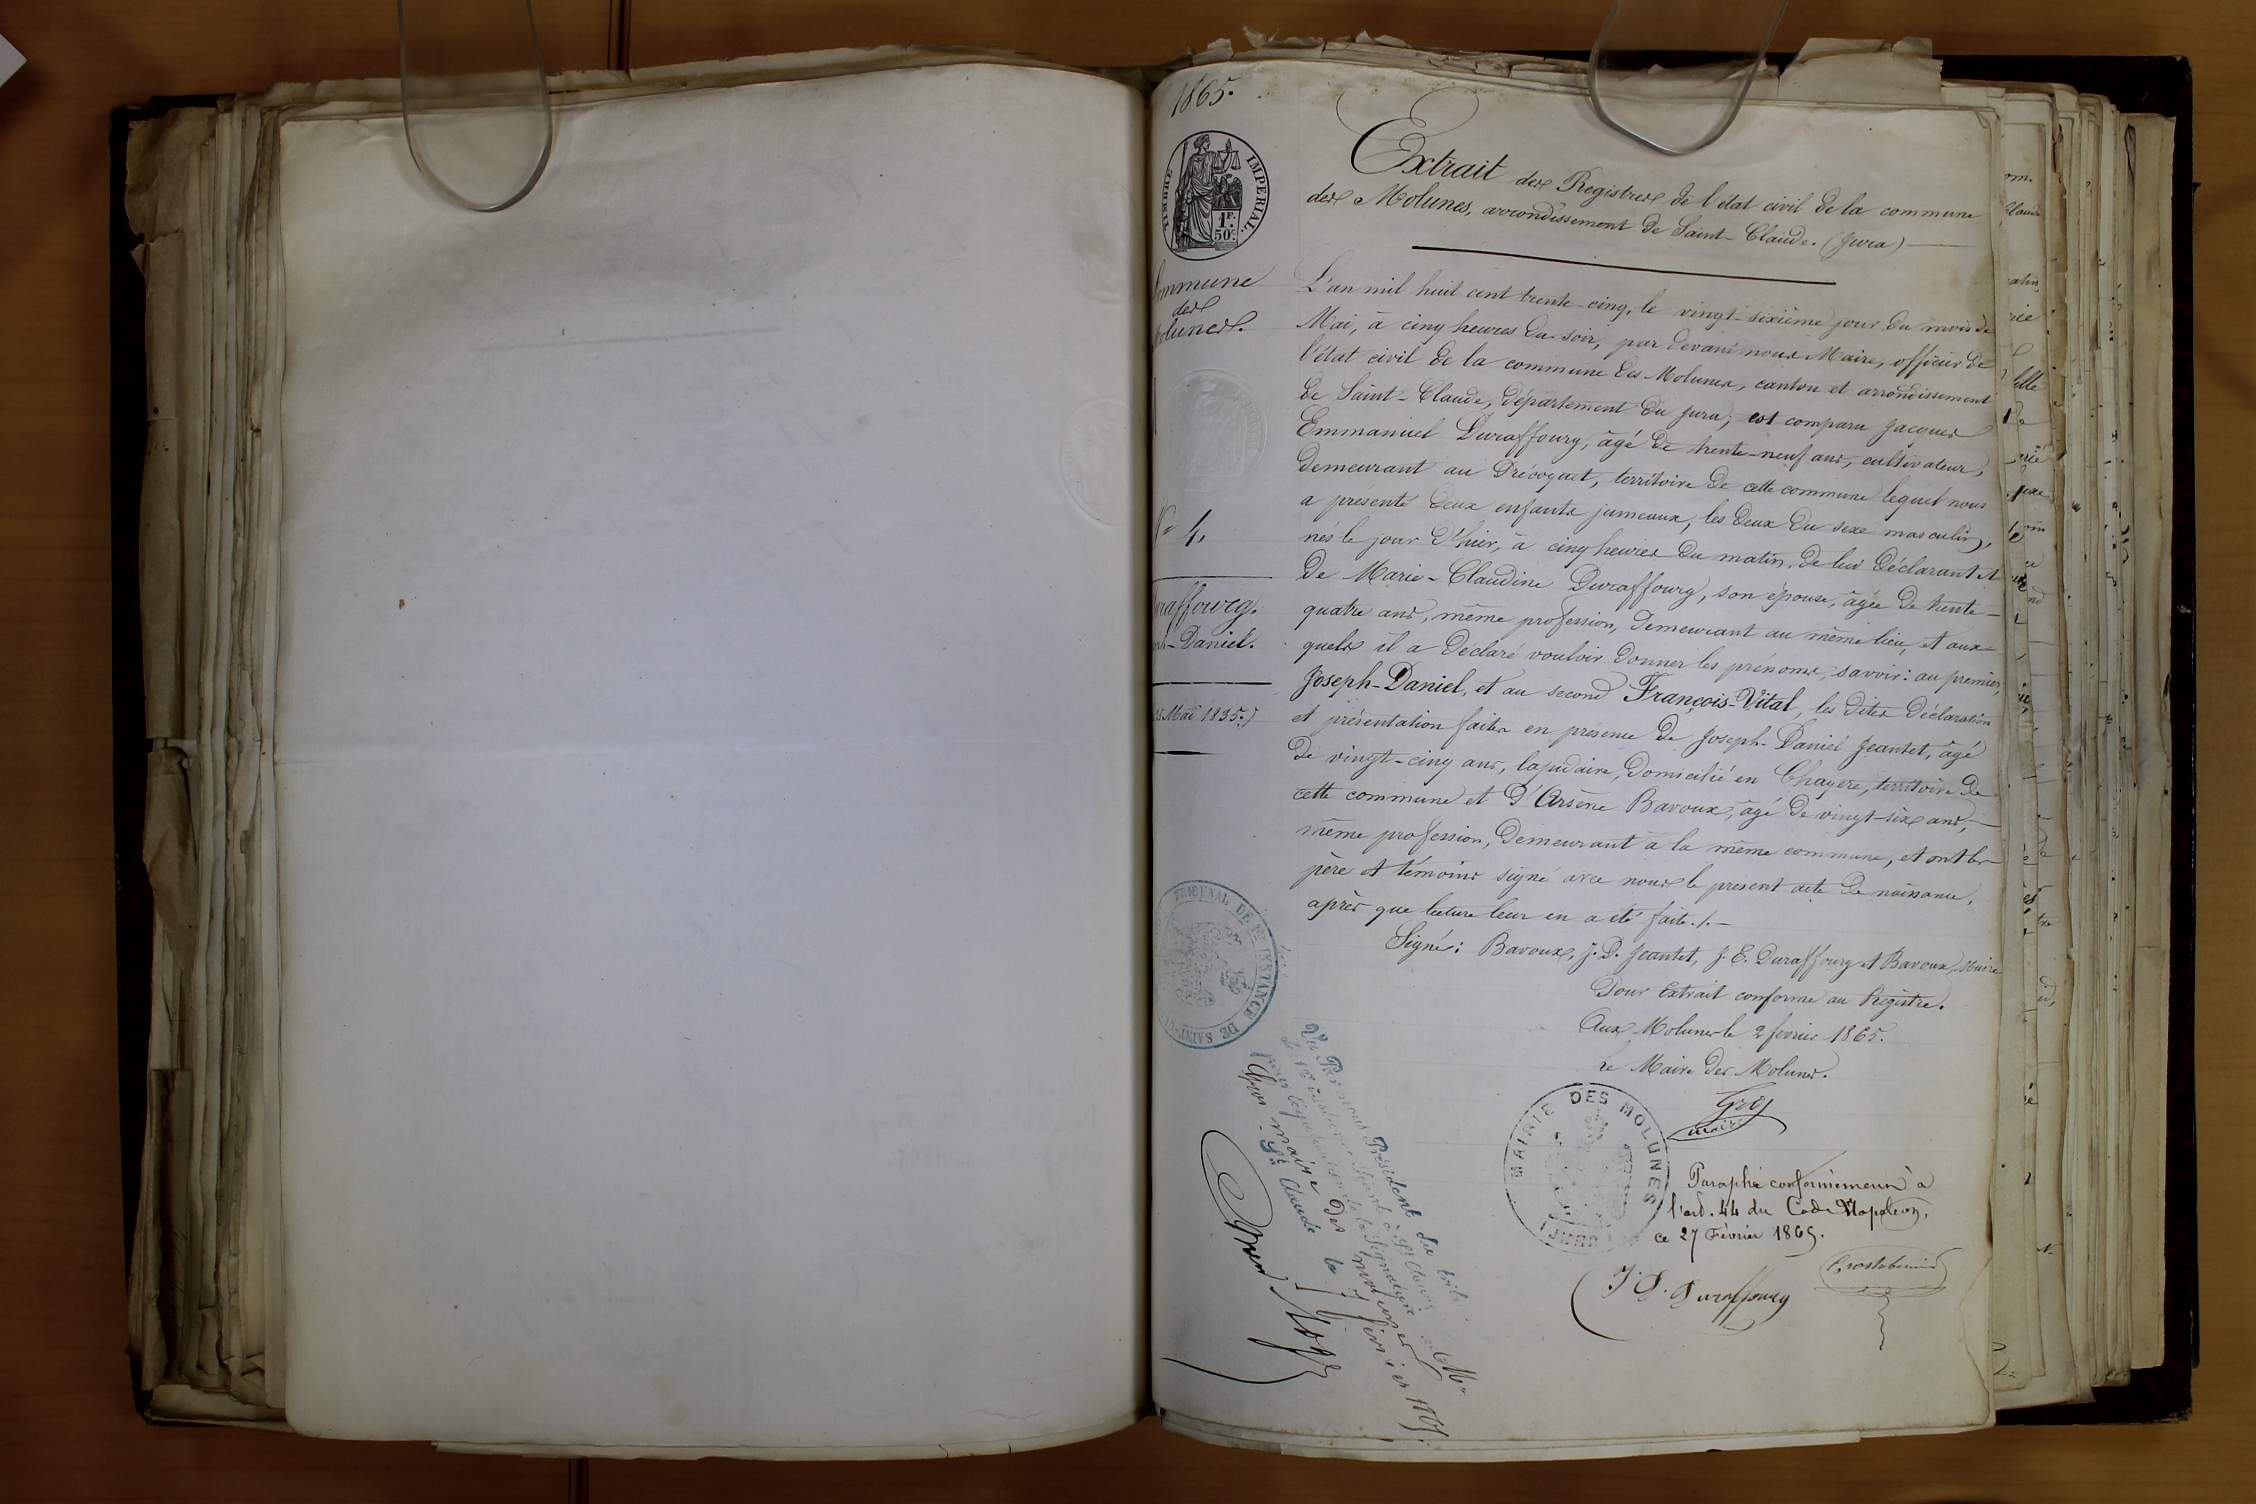 1865.
TIMBRE IMPERIAL.
1F.
50c
Extrait des Registres de l'état civil de la commune
des Molunes, arrondissement de Saint-Claude. (Jura)
Commune
des
Molunes.
L'an mil huit cent trente-cinq, le vingt-sixième jour du mois de
Mai, à cinq heures du soir, par devant nous Maire, officier de
l'état civil de la commune des Molunes, canton et arrondissement
de Saint-Claude, département du Jura, est comparu Jacques
Emmanuel Duraffourg, âgé de trente-neuf ans, cultivateur,
demeurant au Précoquet, territoire de cette commune lequel nous
a présenté deux enfants jumeaux, les deux du sexe masculin,
nés le jour d'hier, à cinq heures du matin, de lui déclarant et
de Marie-Claudine Duraffourg, son épouse, âgée de trente-
quatre ans, même profession, demeurant au même lieu, et aux-
quels il a déclaré vouloir donner les prénoms, savoir: au premier,
Joseph-Daniel, et au second François-Vital, les dites déclaration
et présentation faites en présence de Joseph-Daniel Jeantet, âgé
de vingt-cinq ans, lapidaire, domicilié en Chayere, territoire de
cette commune et d'Arsène Bavoux, âgé de vingt-six ans,
même profession, demeurant à la même commune, et ont les
père et témoins signé avec nous le present acte de naissance,
après que lecture leur en a été faite./.
N° 4.
Duraffourg.
Joseph-Daniel.
25 Mai 1835.)
Signé: Bavoux, J. D. Jeantet, J. E. Duraffourg et Bavoux, Maire
Pour Extrait conforme au Registre.
Aux Molunes le 2 fevrier 1865.
Le Maire des Molunes.
Gros
maire
TRIBUNAL DE 1re INSTANCE DE SAINT-CL
MAIRIE DES MOLUNES
(JURA)
Vu Par nous Président du
de 1re instance séant à St Claude
pour légalisation de la signature de Mr
Gros maire des molunes
St Claude le 7 février 1865.
Paraphé conformément à
l'art. 44 du Code Napoléon,
ce 27 Février 1865.
J. D. Duraffourg